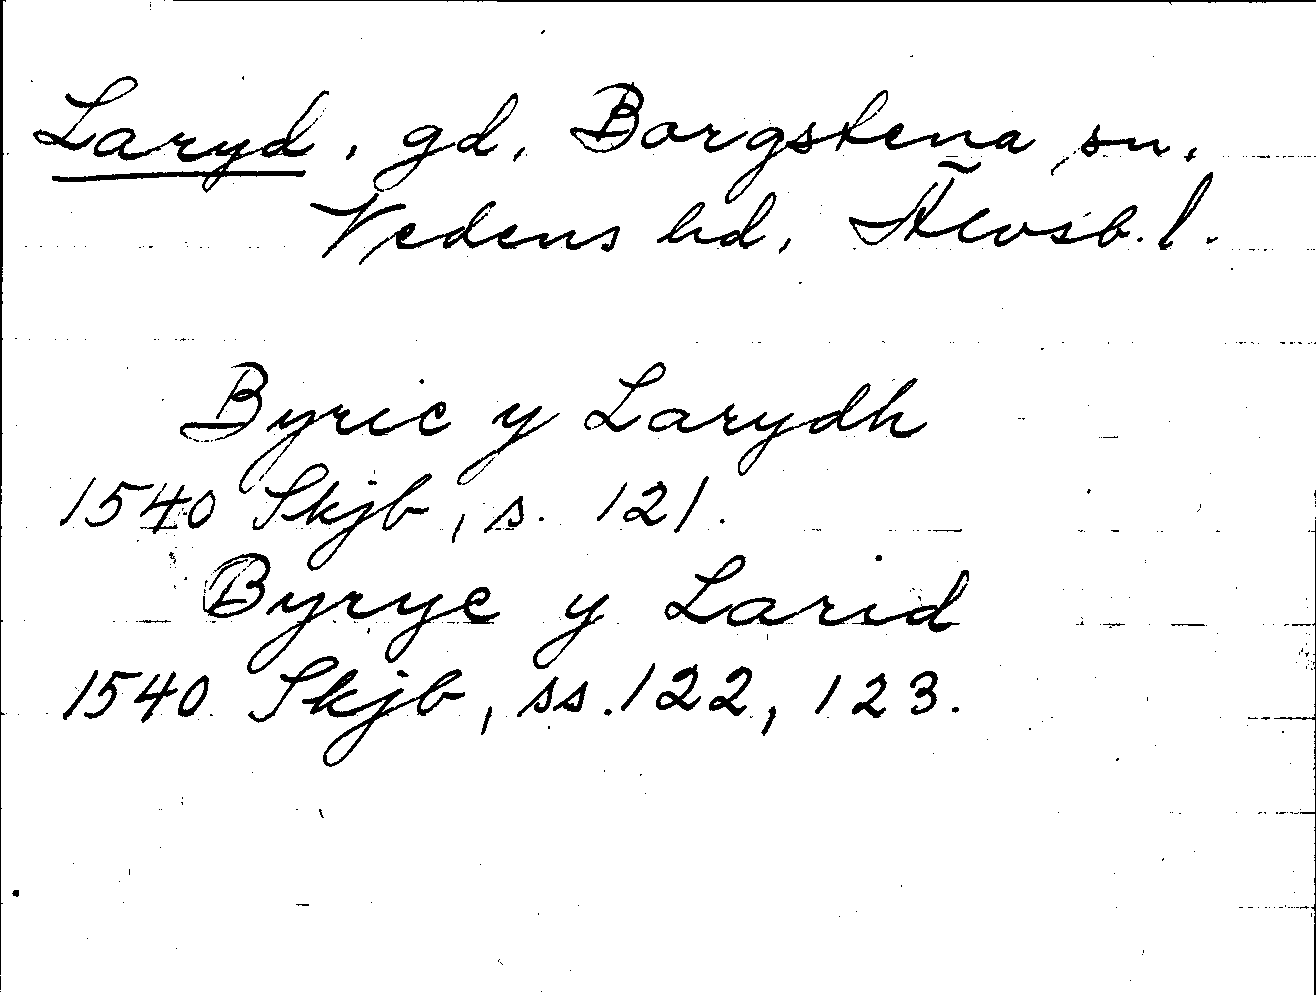 Laryd, gd, Borgstena sn,
Vedens hd, Älvsb. l.
Byric y Larydh
1540 Skjb, s. 121.
Byryc y Larid
1540 Skjb, ss. 122, 123.